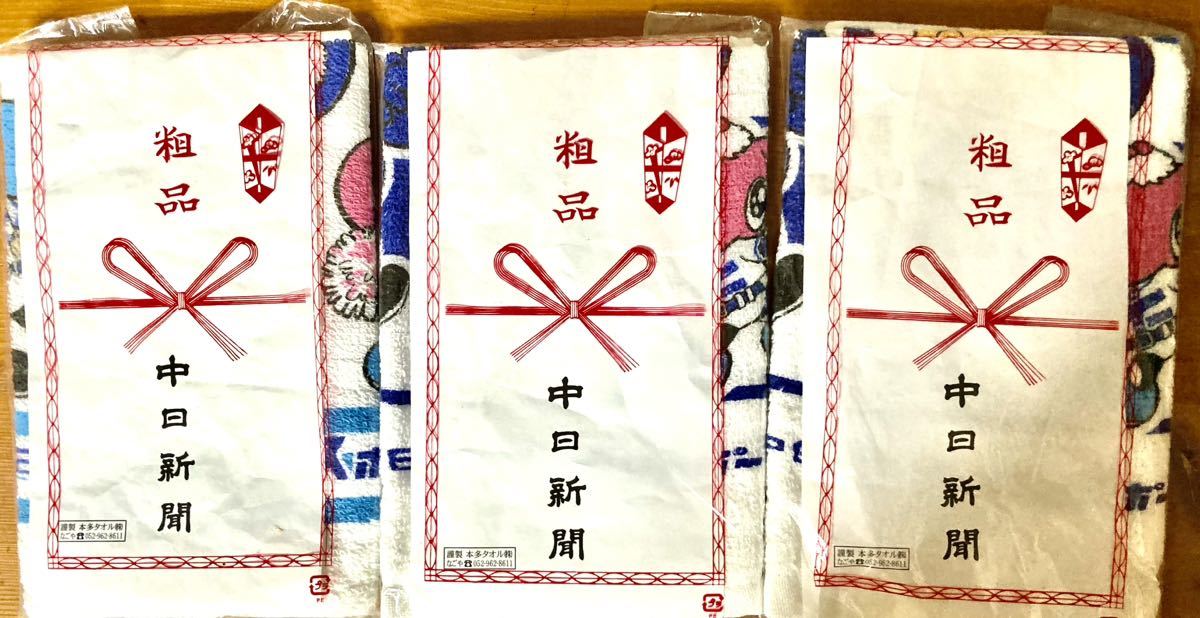 粗品
中日新聞
謹製 本多タオル㈱
なごや☎052-962-8611
PE
粗品
中日新聞
謹製 本多タオル㈱
なごや☎052-962-8611
PE
粗品
中日新聞
謹製 本多タオル㈱
なごや☎052-962-8611